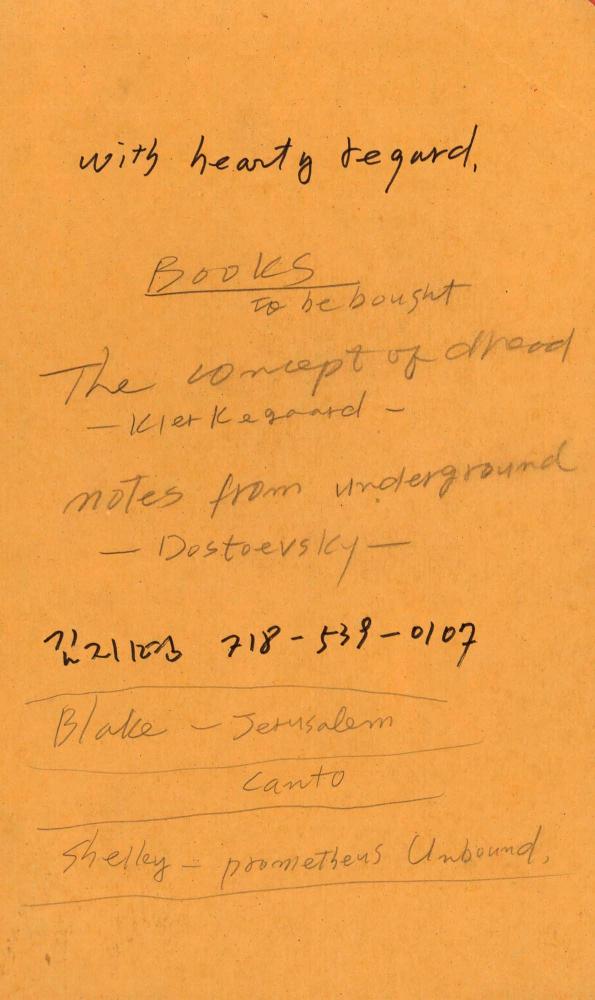 with hearty regard,
Books
to be bought
The concept of dread
- Kierkegaard -
notes from underground
- Dostoevsky -
김지영 718-539-0107
Blake - Jerusalem
Canto
Shelley - prometheus Unbound,